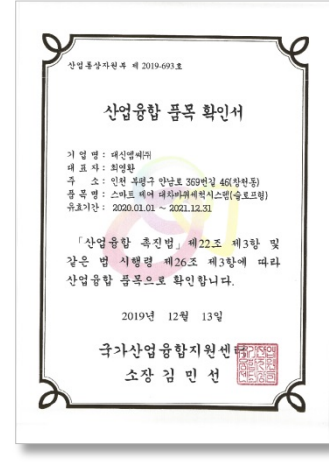 산업통상자원부 제 2019-693호
산업융합 품목 확인서
기 업 명 : 대신엠씨㈜
대 표 자 : 최영환
주 소 : 인천 부평구 안남로 369번길 46(청천동)
품 목 명 : 스마트 제어 대차바퀴세척시스템(슬로프형)
유효기간 : 2020.01.01 ~ 2021.12.31
「산업융합 촉진법」 제22조 제3항 및
같은 법 시행령 제26조 제3항에 따라
산업융합 품목으로 확인합니다.
2019년 12월 13일
국가산업융합지원센터
소장 김 민 선